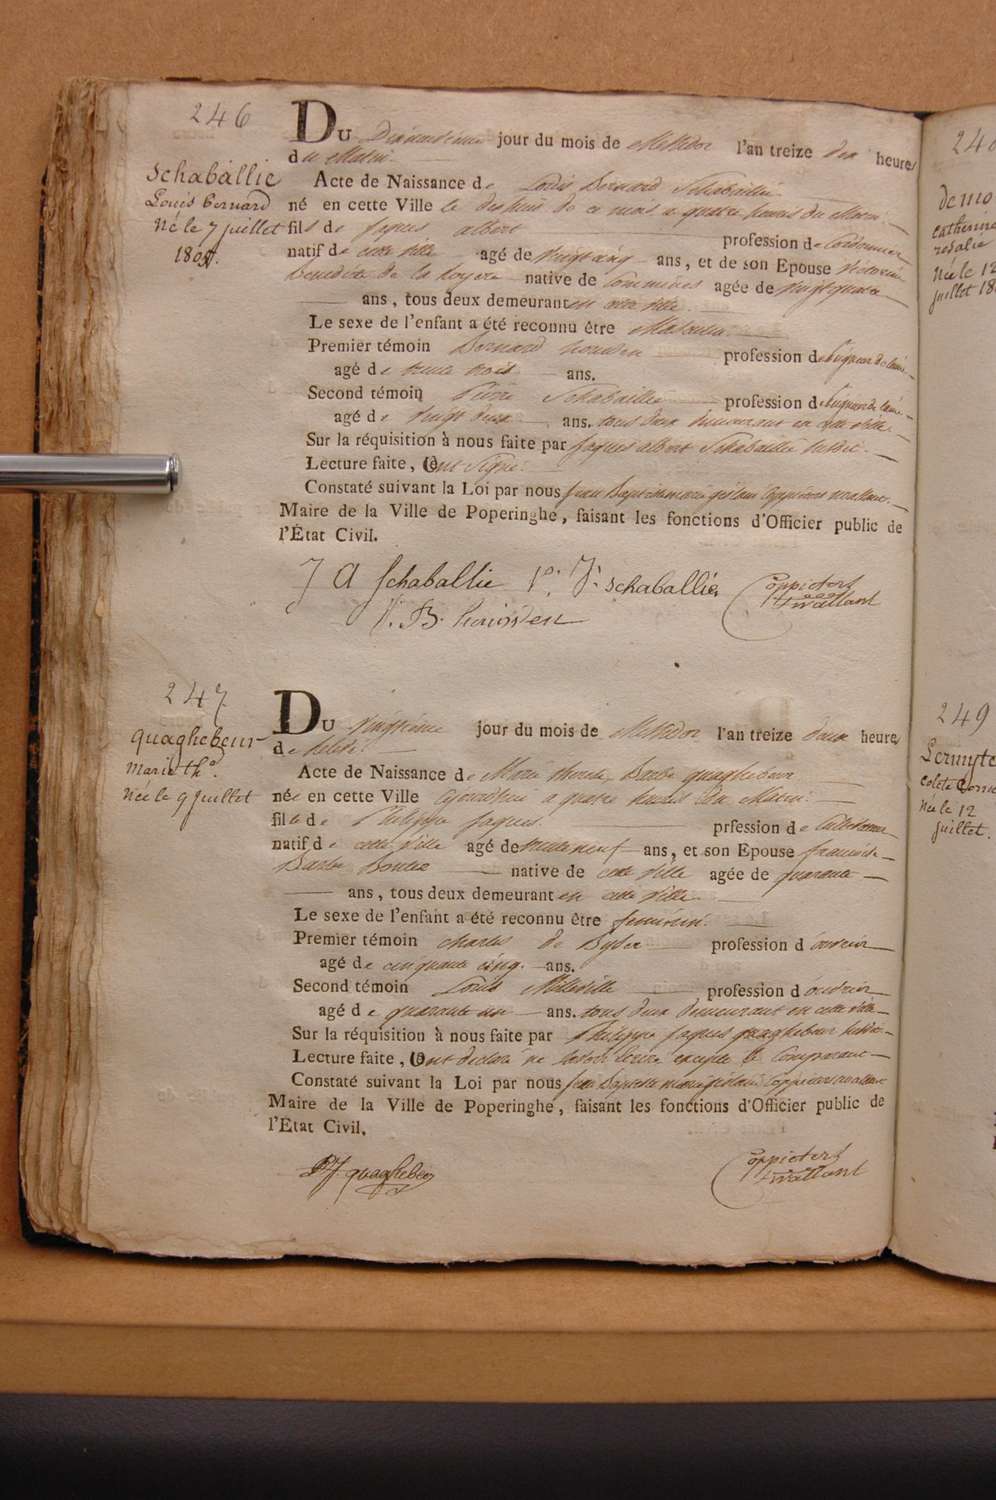 246
Schaballie
Louis Bernard
Né le 7 juillet
1805.
DU Dixneuvieme jour du mois de Messidor l'an treize dix heures
du Matin.
Acte de Naissance de Louis Bernard Schaballie
né en cette Ville le dixhuit de ce mois a quatre heures du Matin
fils de Jaques albert profession de Cordonnier
natif de cette ville agé de vingt cinq ans, et de son Epouse Victoire
Benedicte de la Royere native de Commines agée de vingt quatre
ans, tous deux demeurant en cette ville.
Le sexe de l'enfant a été reconnu être Masculin.
Premier témoin Bernard profession de
agé de trente trois ans.
Second témoin Pierre Schaballie profession de
agé de vingt deux ans. tous deux demeurant en cette ville.
Sur la réquisition à nous faite par Jaques albert Schaballie susdit.
Lecture faite, Ont Signé.
Constaté suivant la Loi par nous Jean Baptiste Coppieters wallant
Maire de la Ville de Poperinghe, faisant les fonctions d'Officier public de
l'État Civil.
J A Schaballie P. J. schaballie Coppieters
wallant
247
quaghebeur
Marie Th.
Née le 9 juillet
DU vingtieme jour du mois de Messidor l'an treize deux heures
de relevée.
Acte de Naissance de Marie therese Barbe quaghebeur
née en cette Ville ajourdhui a quatre heures du Matin.
fille de Philippe Jaques. prfession de Cabaretier
natif de cette ville agé de trente neuf ans, et son Epouse francoise
Barbe native de cette ville agée de quarante
ans, tous deux demeurant en cette ville.
Le sexe de l'enfant a été reconnu être feminin.
Premier témoin charles de Byser profession d'ouvrier
agé de cinquante cinq. ans.
Second témoin Louis Milleville profession d'ouvrier
agé de quarante un ans. tous deux demeurant en cette ville
Sur la réquisition à nous faite par Philippe Jaques quaghebeur susdit
Lecture faite, Ont declaré ne savoir écrire excepté le Comparant
Constaté suivant la Loi par nous Jean Baptiste Coppieters wallant
Maire de la Ville de Poperinghe, faisant les fonctions d'Officier public de
l'État Civil.
P J quaghebeur Coppieters
wallant
catherine
rosalie
Née le 12
juillet 18
249
Lermyte
Née le 12
juillet.